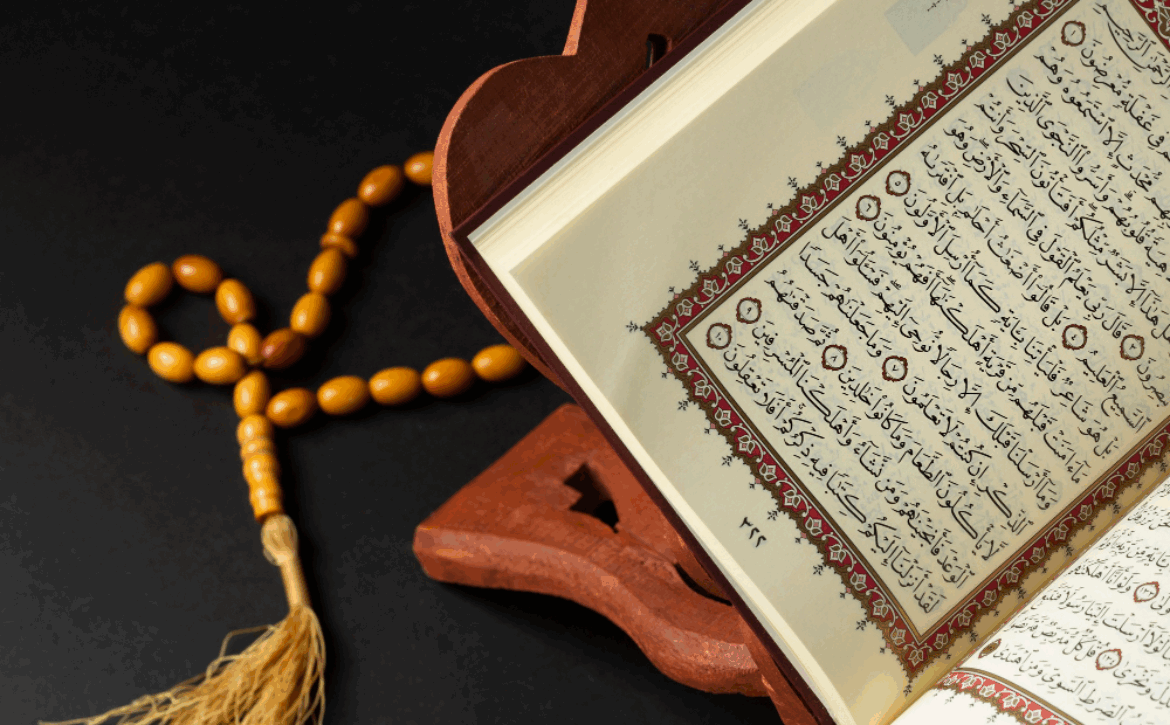 الرَّحْمَٰنِ الرَّحِيمِ
فِي غَفْلَةٍ مُّعْرِضُونَ ١
مُّحْدَثٍ إِلَّا ٱسْتَمَعُوهُ وَهُمْ
قُلُوبُهُمْ وَأَسَرُّوا۟ ٱلنَّجْوَى ٱلَّذِينَ
هَلْ هَٰذَآ إِلَّا بَشَرٌ مِّثْلُكُمْ أَفَتَأْتُونَ ٱلسِّحْرَ وَأَنتُمْ
تُبْصِرُونَ ٣ قَالَ رَبِّى يَعْلَمُ ٱلْقَوْلَ فِى ٱلسَّمَآءِ وَٱلْأَرْضِ وَهُوَ
ٱلسَّمِيعُ ٱلْعَلِيمُ ٤ بَلْ قَالُوٓا۟ أَضْغَٰثُ أَحْلَٰمٍۭ بَلِ ٱفْتَرَىٰهُ
بَلْ هُوَ شَاعِرٌ فَلْيَأْتِنَا بِـَٔايَةٍ كَمَآ أُرْسِلَ ٱلْأَوَّلُونَ ٥
مَآ ءَامَنَتْ قَبْلَهُم مِّن قَرْيَةٍ أَهْلَكْنَٰهَآ أَفَهُمْ يُؤْمِنُونَ ٦
وَمَآ أَرْسَلْنَا قَبْلَكَ إِلَّا رِجَالًا نُّوحِىٓ إِلَيْهِمْ فَسْـَٔلُوٓا۟ أَهْلَ
ٱلذِّكْرِ إِن كُنتُمْ لَا تَعْلَمُونَ ٧ وَمَا جَعَلْنَٰهُمْ جَسَدًا
لَّا يَأْكُلُونَ ٱلطَّعَامَ وَمَا كَانُوا۟ خَٰلِدِينَ ٨ ثُمَّ صَدَقْنَٰهُمُ
ٱلْوَعْدَ فَأَنجَيْنَٰهُمْ وَمَن نَّشَآءُ وَأَهْلَكْنَا ٱلْمُسْرِفِينَ ٩
لَقَدْ أَنزَلْنَآ إِلَيْكُمْ كِتَٰبًا فِيهِ ذِكْرُكُمْ أَفَلَا تَعْقِلُونَ ١٠
٣٢٢
وَلَوْ أَنَّآ أَهْلَكْنَٰهُم
لَوْلَآ أَرْسَلْتَ إِلَيْنَا رَسُولًا فَنَتَّبِعَ
وَنَخْزَىٰ ١٣٤ قُلْ كُلٌّ مُّتَرَبِّصٌ
ٱلصِّرَٰطِ ٱلسَّوِىِّ وَمَنِ ٱهْتَدَىٰ